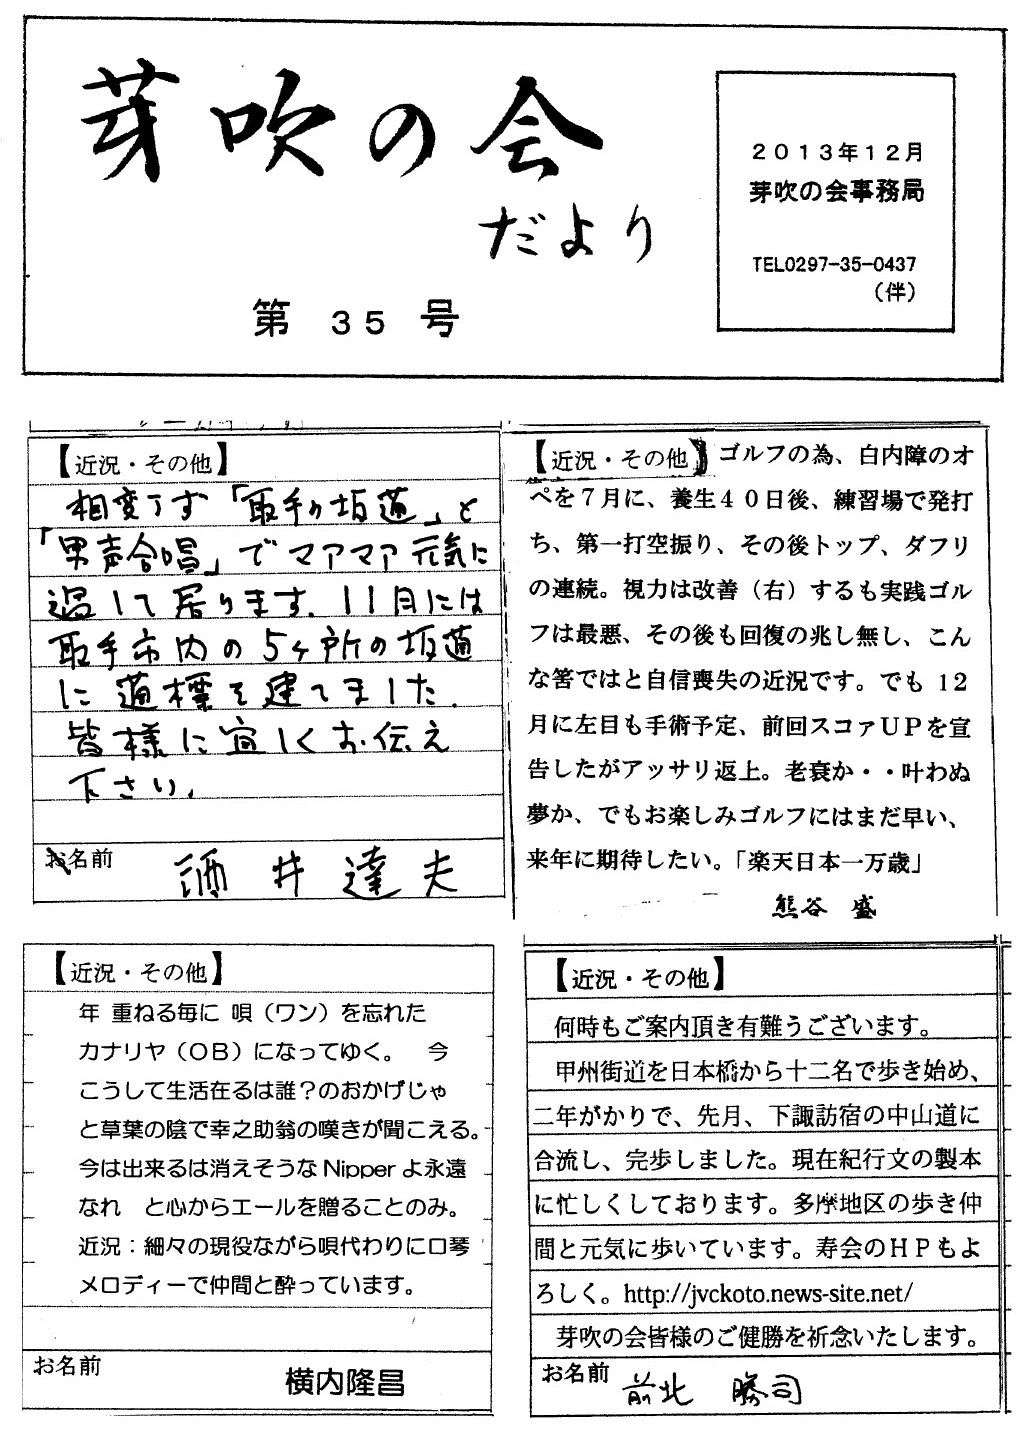 芽吹の会
だより
第 35 号
2013年12月
芽吹の会事務局
TEL0297-35-0437
(伴)
【近況・その他】
相変らず「取手の坂道」と
「男声合唱」でマアマア元気に
過して居ります。11月には
取手市内の5ヶ所の坂道
に道標を建てました。
皆様に宜しくお伝え
下さい。
お名前 酒井達夫
【近況・その他】ゴルフの為、白内障のオ
ペを7月に、養生40日後、練習場で発打
ち、第一打空振り、その後トップ、ダフリ
の連続。視力は改善(右)するも実践ゴル
フは最悪、その後も回復の兆し無し、こん
な筈ではと自信喪失の近況です。でも 12
月に左目も手術予定、前回スコァUPを宣
告したがアッサリ返上。老衰か・・叶わぬ
夢か、でもお楽しみゴルフにはまだ早い、
来年に期待したい。「楽天日本一万歳」
熊谷 盛
【近況・その他】
年 重ねる毎に 唄(ワン)を忘れた
カナリヤ(OB)になってゆく。 今
こうして生活在るは誰?のおかげじゃ
と草葉の陰で幸之助翁の嘆きが聞こえる。
今は出来るは消えそうなNipperよ永遠
なれ と心からエールを贈ることのみ。
近況:細々の現役ながら唄代わりに口琴
メロディーで仲間と酔っています。
お名前 横内隆昌
【近況・その他】
何時もご案内頂き有難うございます。
甲州街道を日本橋から十二名で歩き始め、
二年がかりで、先月、下諏訪宿の中山道に
合流し、完歩しました。現在紀行文の製本
に忙しくしております。多摩地区の歩き仲
間と元気に歩いています。寿会のHPもよ
ろしく。http://jvckoto.news-site.net/
芽吹の会皆様のご健勝を祈念いたします。
お名前 前北 勝司